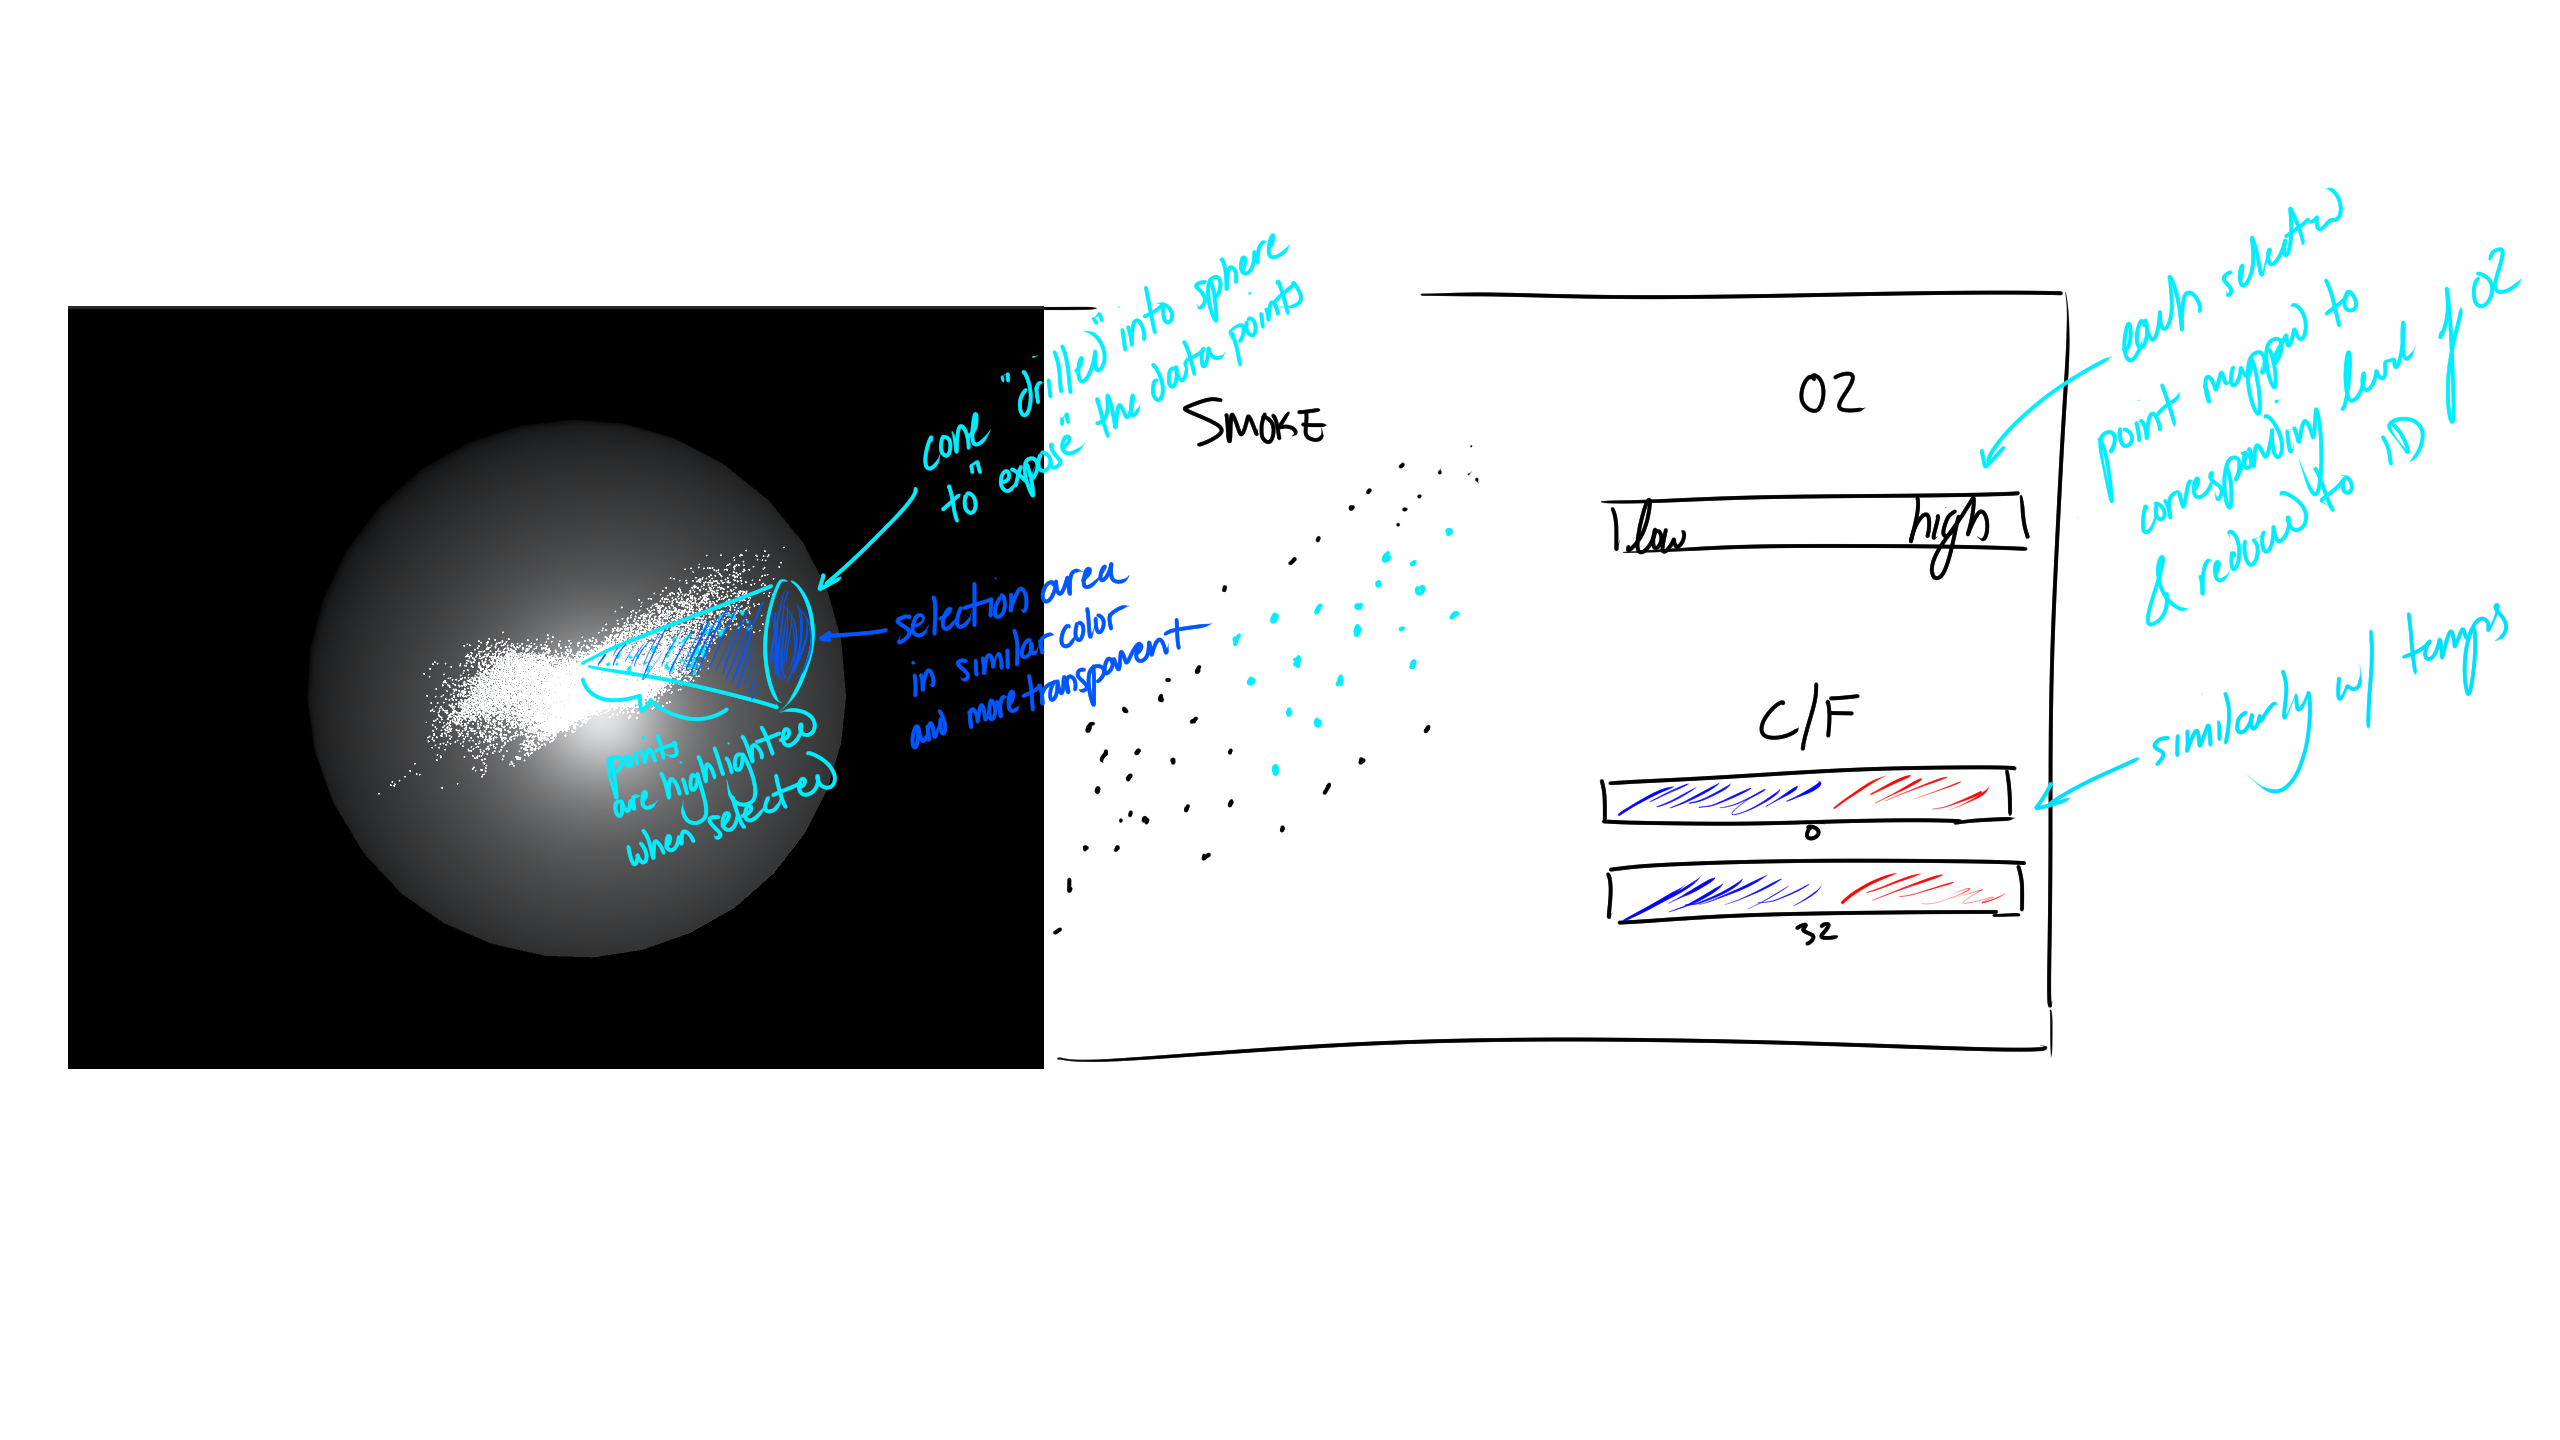 cone "drilled" into sphere
to "expose" the data points
selection area
in similar color
and more transparent
points
are highlighted
when selected
SMOKE
O2
low high
C/F
0
32
each selected
point mapped to
corresponding level of O2
& reduced to 1D
similarly w/ temps